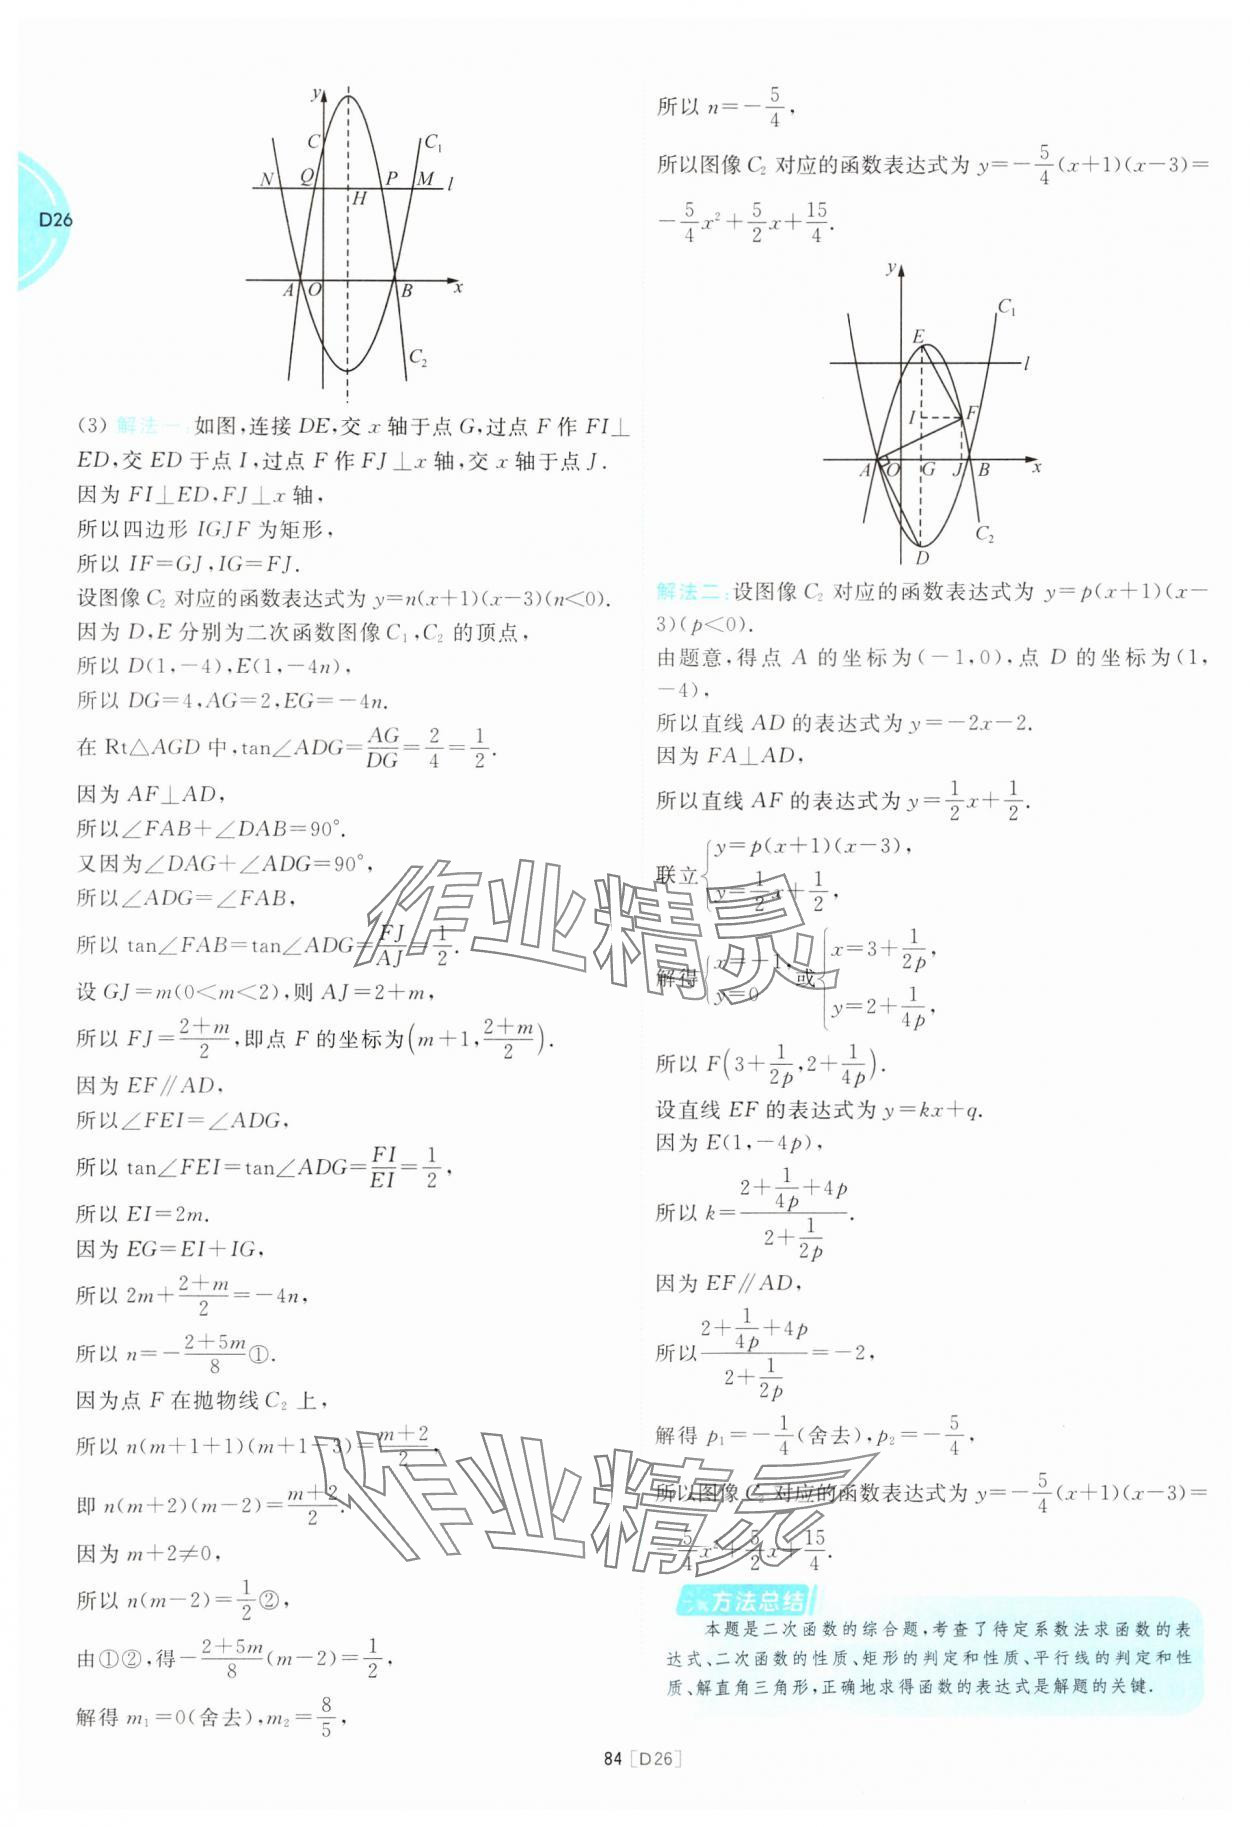 D26
y
C
C₁
N
Q
P
M
l
H
A
O
B
x
C₂
(3) 解法一:如图,连接 DE,交 x 轴于点 G,过点 F 作 FI⊥
ED,交 ED 于点 I,过点 F 作 FJ⊥x 轴,交 x 轴于点 J.
因为 FI⊥ED,FJ⊥x 轴,
所以四边形 IGJF 为矩形,
所以 IF=GJ,IG=FJ.
设图像 C₂ 对应的函数表达式为 y=n(x+1)(x-3)(n<0).
因为 D,E 分别为二次函数图像 C₁,C₂ 的顶点,
所以 D(1,-4),E(1,-4n),
所以 DG=4,AG=2,EG=-4n.
在 Rt△AGD 中,tan∠ADG=AG/DG=2/4=1/2.
因为 AF⊥AD,
所以∠FAB+∠DAB=90°.
又因为∠DAG+∠ADG=90°,
所以∠ADG=∠FAB,
所以 tan∠FAB=tan∠ADG=FJ/AJ=1/2.
设 GJ=m(0<m<2),则 AJ=2+m,
所以 FJ=(2+m)/2,即点 F 的坐标为(m+1,(2+m)/2).
因为 EF∥AD,
所以∠FEI=∠ADG,
所以 tan∠FEI=tan∠ADG=FI/EI=1/2,
所以 EI=2m.
因为 EG=EI+IG,
所以 2m+(2+m)/2=-4n,
所以 n=-(2+5m)/8①.
因为点 F 在抛物线 C₂ 上,
所以 n(m+1+1)(m+1-3)=(m+2)/2,
即 n(m+2)(m-2)=(m+2)/2.
因为 m+2≠0,
所以 n(m-2)=1/2②,
由①②,得-(2+5m)/8(m-2)=1/2,
解得 m₁=0(舍去),m₂=8/5,
所以 n=-5/4,
所以图像 C₂ 对应的函数表达式为 y=-5/4(x+1)(x-3)=
-5/4x²+5/2x+15/4.
y
C₁
E
l
I
F
A
O
G
J
B
x
C₂
D
解法二:设图像 C₂ 对应的函数表达式为 y=p(x+1)(x-
3)(p<0).
由题意,得点 A 的坐标为(-1,0),点 D 的坐标为(1,
-4),
所以直线 AD 的表达式为 y=-2x-2.
因为 FA⊥AD,
所以直线 AF 的表达式为 y=1/2x+1/2.
联立{y=p(x+1)(x-3),
y=1/2x+1/2,
解得{x=-1,y=0或{x=3+1/(2p),
y=2+1/(4p),
所以 F(3+1/(2p),2+1/(4p)).
设直线 EF 的表达式为 y=kx+q.
因为 E(1,-4p),
所以 k=(2+1/(4p)+4p)/(2+1/(2p)).
因为 EF∥AD,
所以(2+1/(4p)+4p)/(2+1/(2p))=-2,
解得 p₁=-1/4(舍去),p₂=-5/4,
所以图像 C₂ 对应的函数表达式为 y=-5/4(x+1)(x-3)=
-5/4x²+5/2x+15/4.
方法总结
本题是二次函数的综合题,考查了待定系数法求函数的表
达式、二次函数的性质、矩形的判定和性质、平行线的判定和性
质、解直角三角形,正确地求得函数的表达式是解题的关键.
作业精灵
作业精灵
84[D26]